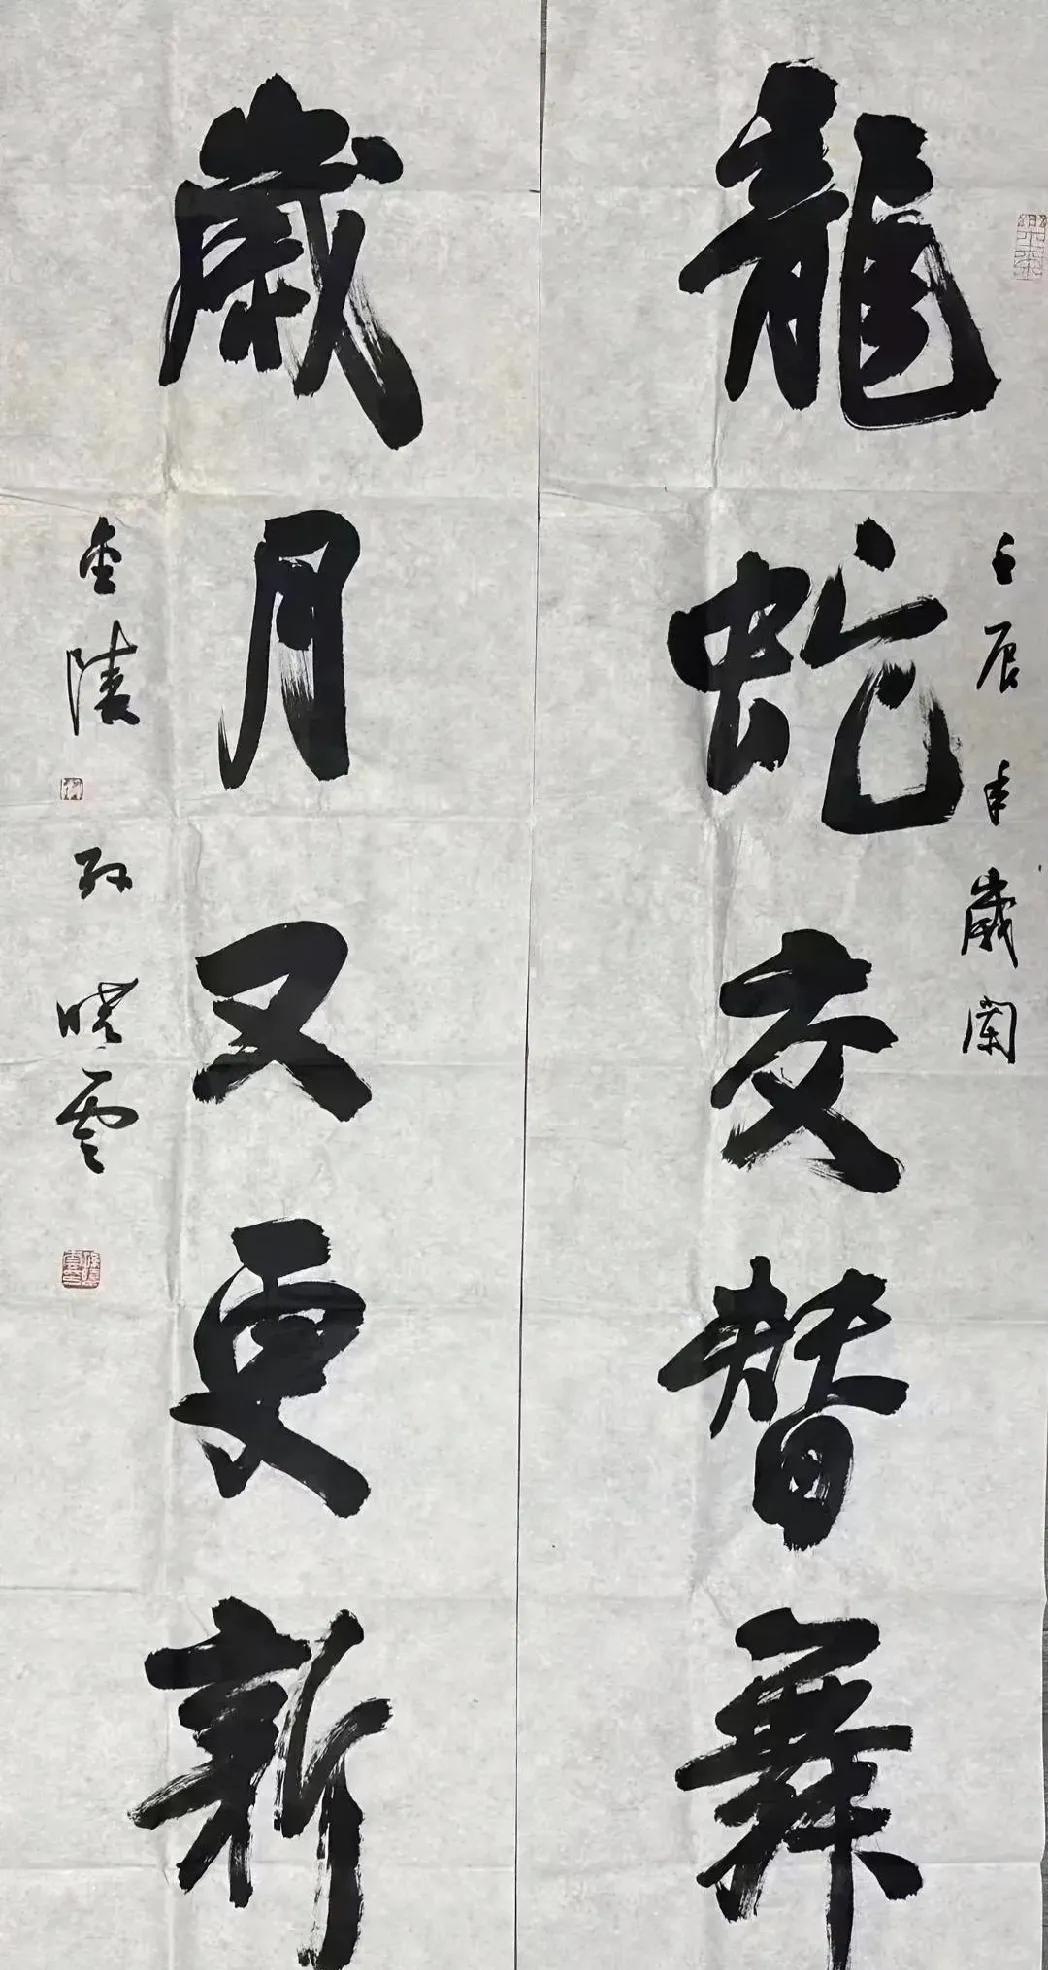 龍蛇交替舞
壬辰年歲闌
歲月又更新
金陵孙晓雲